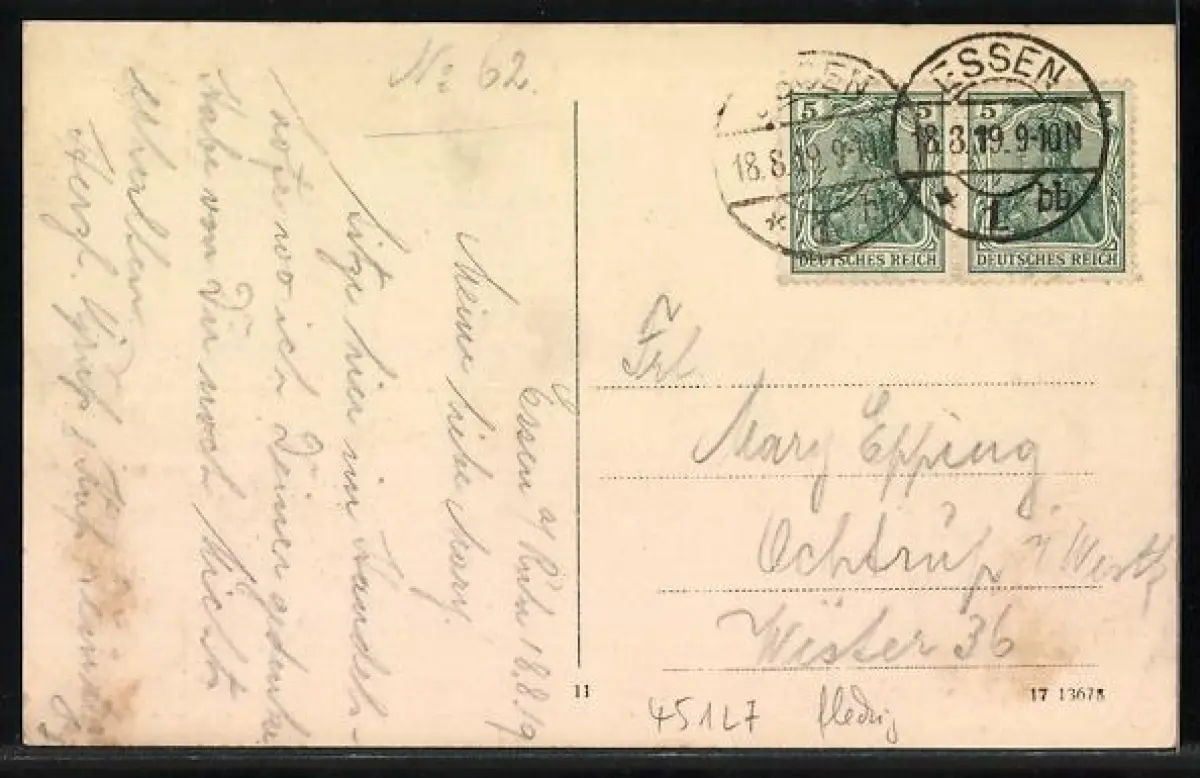 No 62.
Essen a/Ruhr 18.8.19
Meine liebe Mary.
Sitze hier im Handels-
wo ich Deiner gedenke.
Habe von Dir noch Nicht
erhalten.
Herzl. Gruß
ESSEN
18.8.19.9-10N
* 1 bb
ESSEN
18.8.19.9-10N
* 1 bb
5 5
DEUTSCHES REICH
5 5
DEUTSCHES REICH
Frl
Mary Epping
Ochtrup i/Westf
Wester 36
11
17 13678
45127 fleckig